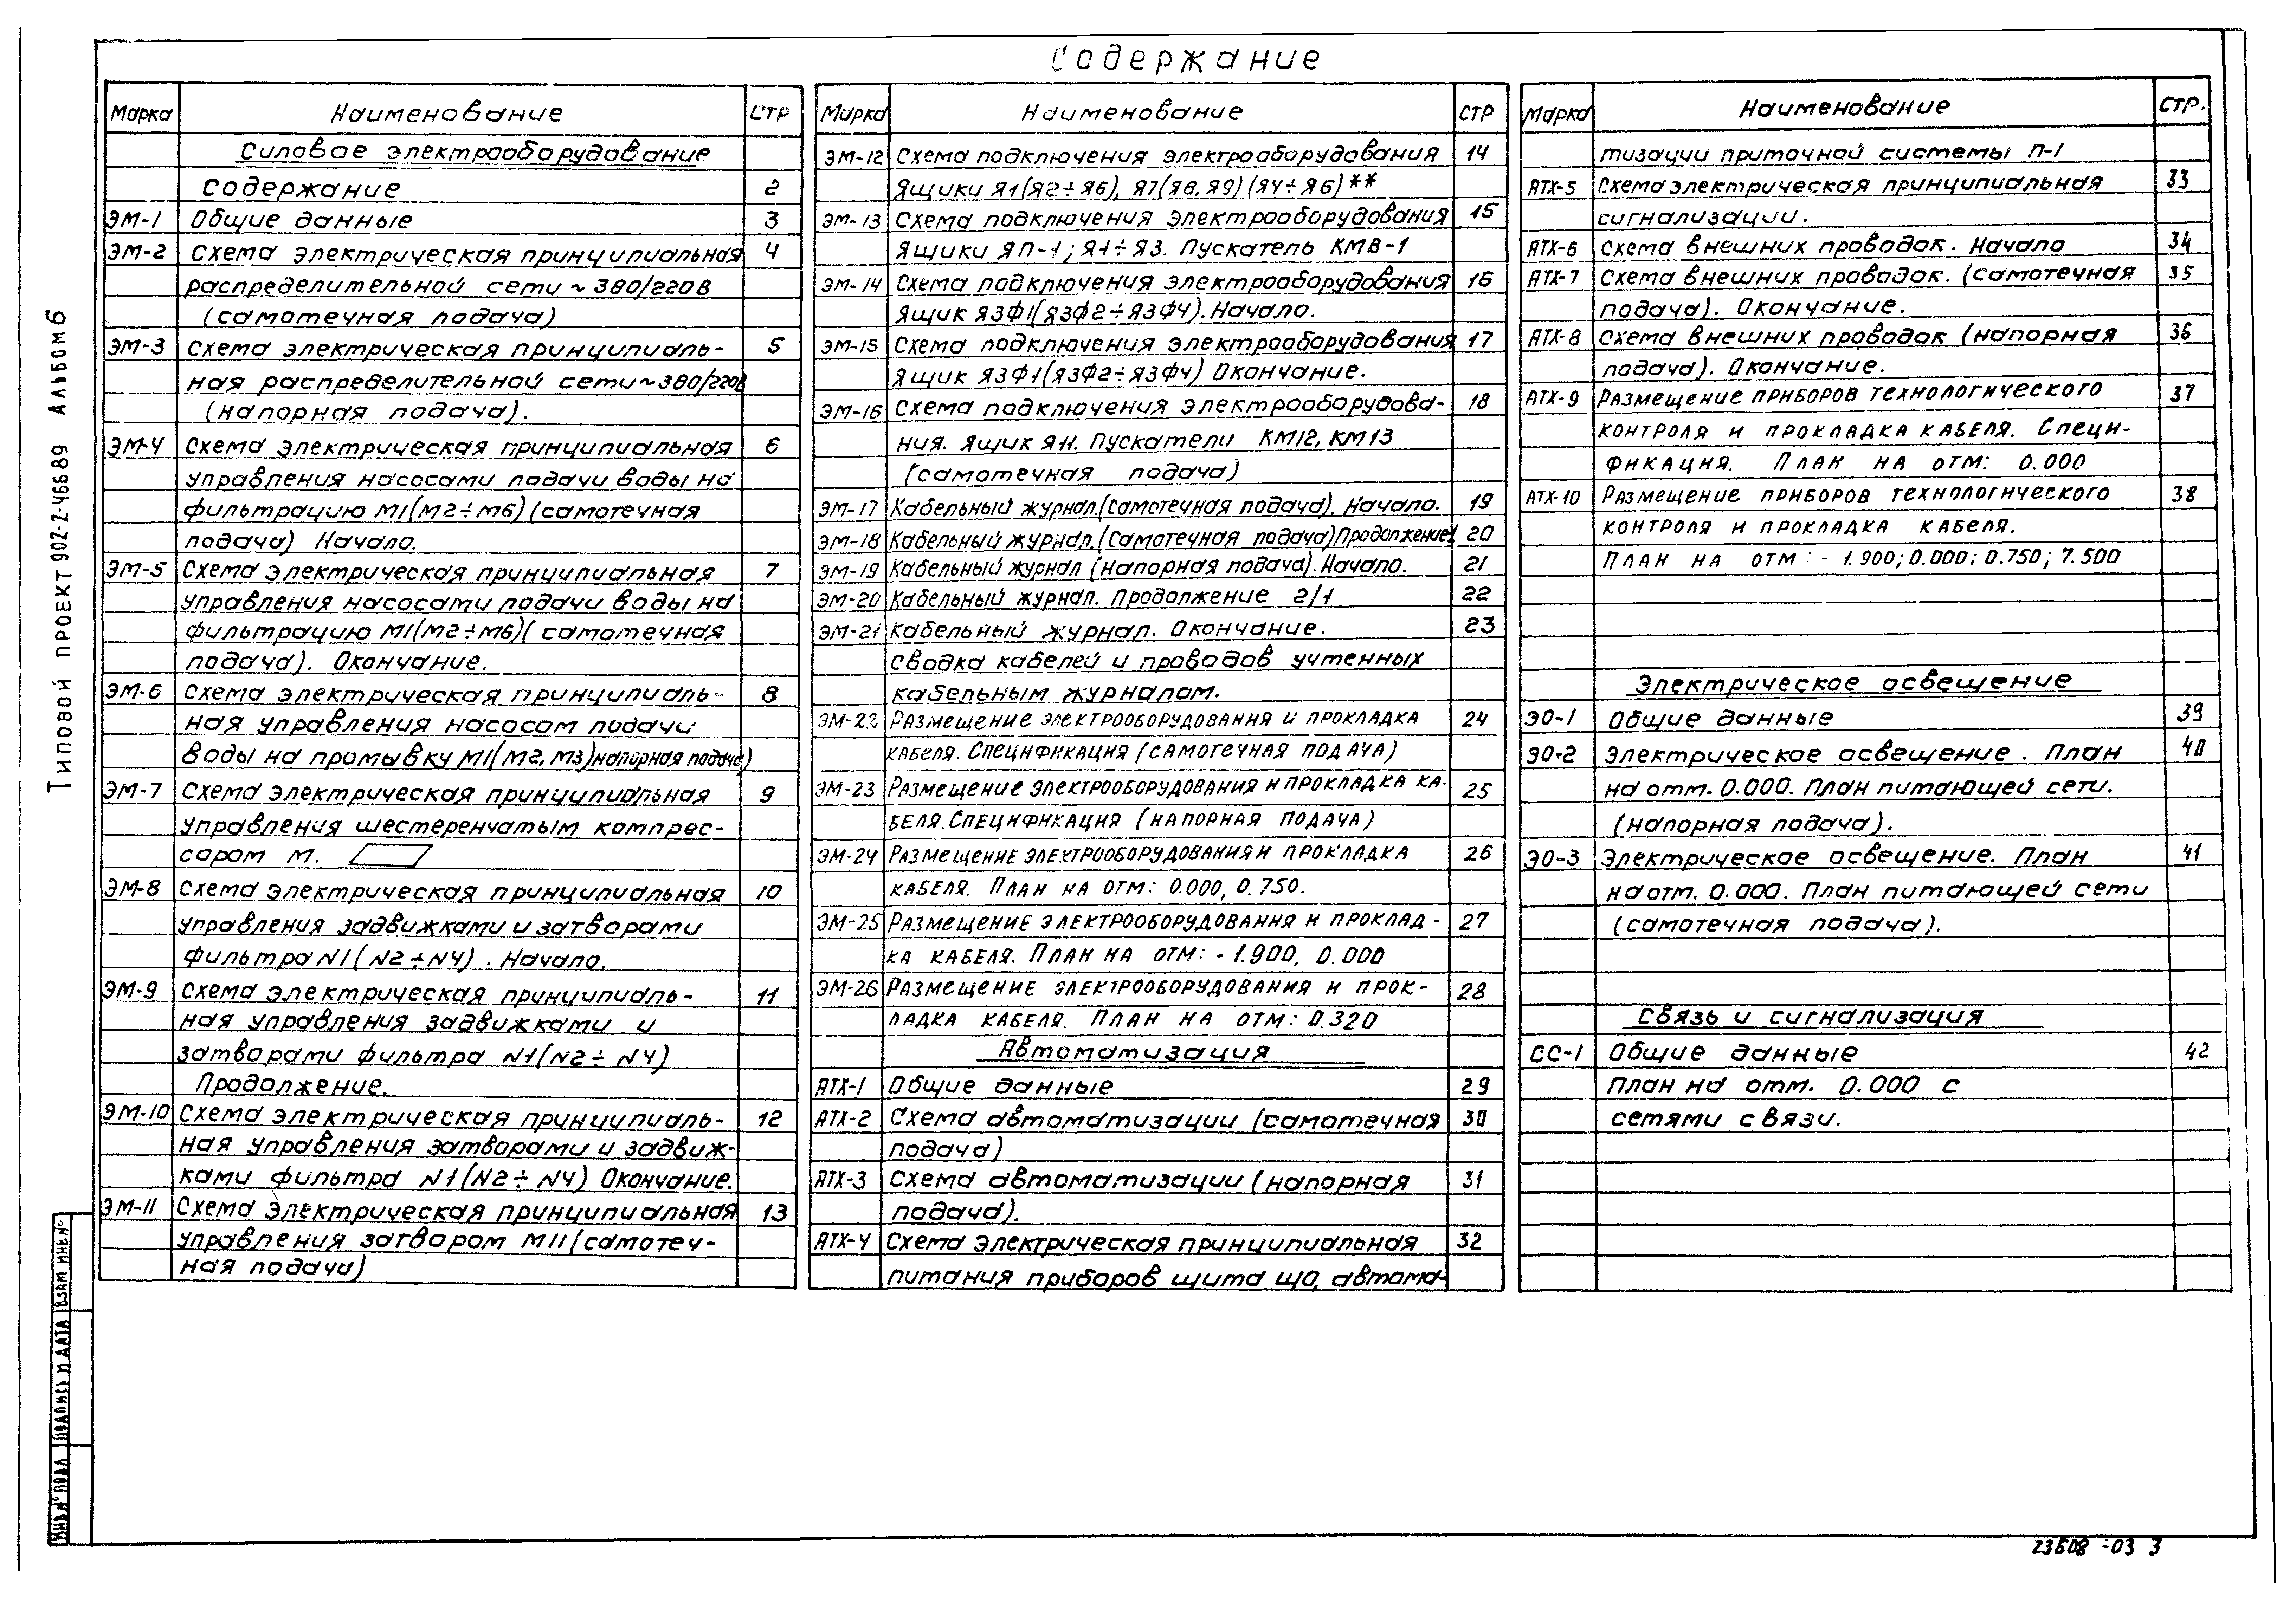 Содержание
Марка Наименование Стр
Силовое электрооборудование
Содержание 2
ЭМ-1 Общие данные 3
ЭМ-2 Схема электрическая принципиальная 4
распределительной сети ~380/220В
(самотечная подача)
ЭМ-3 Схема электрическая принципиаль- 5
ная распределительной сети ~380/220В
(напорная подача).
ЭМ-4 Схема электрическая принципиальная 6
управления насосами подачи воды на
фильтрацию М1(М2÷М6)(самотечная
подача) Начало.
ЭМ-5 Схема электрическая принципиальная 7
управления насосами подачи воды на
фильтрацию М1(М2÷М6)(самотечная
подача). Окончание.
ЭМ-6 Схема электрическая принципиаль- 8
ная управления насосом подачи
воды на промывку М1(М2, М3)напорная подача)
ЭМ-7 Схема электрическая принципиальная 9
управления шестеренчатым компрес-
сором М.
ЭМ-8 Схема электрическая принципиальная 10
управления задвижками и затворами
фильтра N1(N2÷N4). Начало.
ЭМ-9 Схема электрическая принципиаль- 11
ная управления задвижками и
затворами фильтра N1(N2÷N4)
Продолжение.
ЭМ-10 Схема электрическая принципиаль- 12
ная управления затворами и задвиж-
ками фильтра N1(N2÷N4) Окончание.
ЭМ-11 Схема электрическая принципиальная 13
управления затвором М11(самотеч-
ная подача)
Марка Наименование Стр
ЭМ-12 Схема подключения электрооборудования 14
Ящики Я1(Я2÷Я6), Я7(Я8, Я9)(Я4÷Я6)**
ЭМ-13 Схема подключения электрооборудования 15
Ящики ЯП-1; Я1÷Я3. Пускатель КМВ-1
ЭМ-14 Схема подключения электрооборудования 16
Ящик ЯЗФ1(ЯЗФ2÷ЯЗФ4). Начало.
ЭМ-15 Схема подключения электрооборудования 17
Ящик ЯЗФ1(ЯЗФ2÷ЯЗФ4) Окончание.
ЭМ-16 Схема подключения электрооборудова- 18
ния. Ящик Я11. Пускатели КМ12, КМ13
(самотечная подача)
ЭМ-17 Кабельный журнал.(самотечная подача). Начало. 19
ЭМ-18 Кабельный журнал.(самотечная подача)Продолжение1 20
ЭМ-19 Кабельный журнал (напорная подача). Начало. 21
ЭМ-20 Кабельный журнал. Продолжение 2/1 22
ЭМ-21 Кабельный журнал. Окончание. 23
Сводка кабелей и проводов учтенных
кабельным журналом.
ЭМ-22 Размещение электрооборудования и прокладка 24
кабеля. Спецификация (самотечная подача)
ЭМ-23 Размещение электрооборудования и прокладка ка- 25
беля. Спецификация (напорная подача)
ЭМ-24 Размещение электрооборудования и прокладка 26
кабеля. План на отм: 0.000, 0.750.
ЭМ-25 Размещение электрооборудования и проклад- 27
ка кабеля. План на отм: -1.900, 0.000
ЭМ-26 Размещение электрооборудования и прок- 28
ладка кабеля. План на отм: 0.320
Автоматизация
АТХ-1 Общие данные 29
АТХ-2 Схема автоматизации (самотечная 30
подача)
АТХ-3 Схема автоматизации (напорная 31
подача).
АТХ-4 Схема электрическая принципиальная 32
питания приборов щита ЩО, автома-
Марка Наименование Стр.
тизации приточной системы П-1
АТХ-5 Схема электрическая принципиальная 33
сигнализации.
АТХ-6 Схема внешних проводок. Начало 34
АТХ-7 Схема внешних проводок. (самотечная 35
подача). Окончание.
АТХ-8 Схема внешних проводок (напорная 36
подача). Окончание.
АТХ-9 Размещение приборов технологического 37
контроля и прокладка кабеля. Специ-
фикация. План на отм: 0.000
АТХ-10 Размещение приборов технологического 38
контроля и прокладка кабеля.
План на отм: -1.900; 0.000; 0.750; 7.500
Электрическое освещение
ЭО-1 Общие данные 39
ЭО-2 Электрическое освещение. План 40
на отм. 0.000. План питающей сети.
(напорная подача).
ЭО-3 Электрическое освещение. План 41
на отм. 0.000. План питающей сети
(самотечная подача).
Связь и сигнализация
СС-1 Общие данные 42
План на отм. 0.000 с
сетями связи.
Типовой проект 902-2-466.89 Альбом 6
Инв.N° подл Подпись и дата Взам инв.N°
23608-03 3